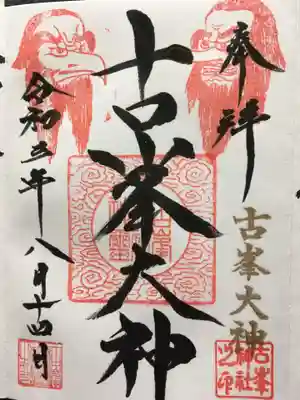 奉拝
古峯大神
古峯大神
令和三年八月十四日
古峯
神社
之印